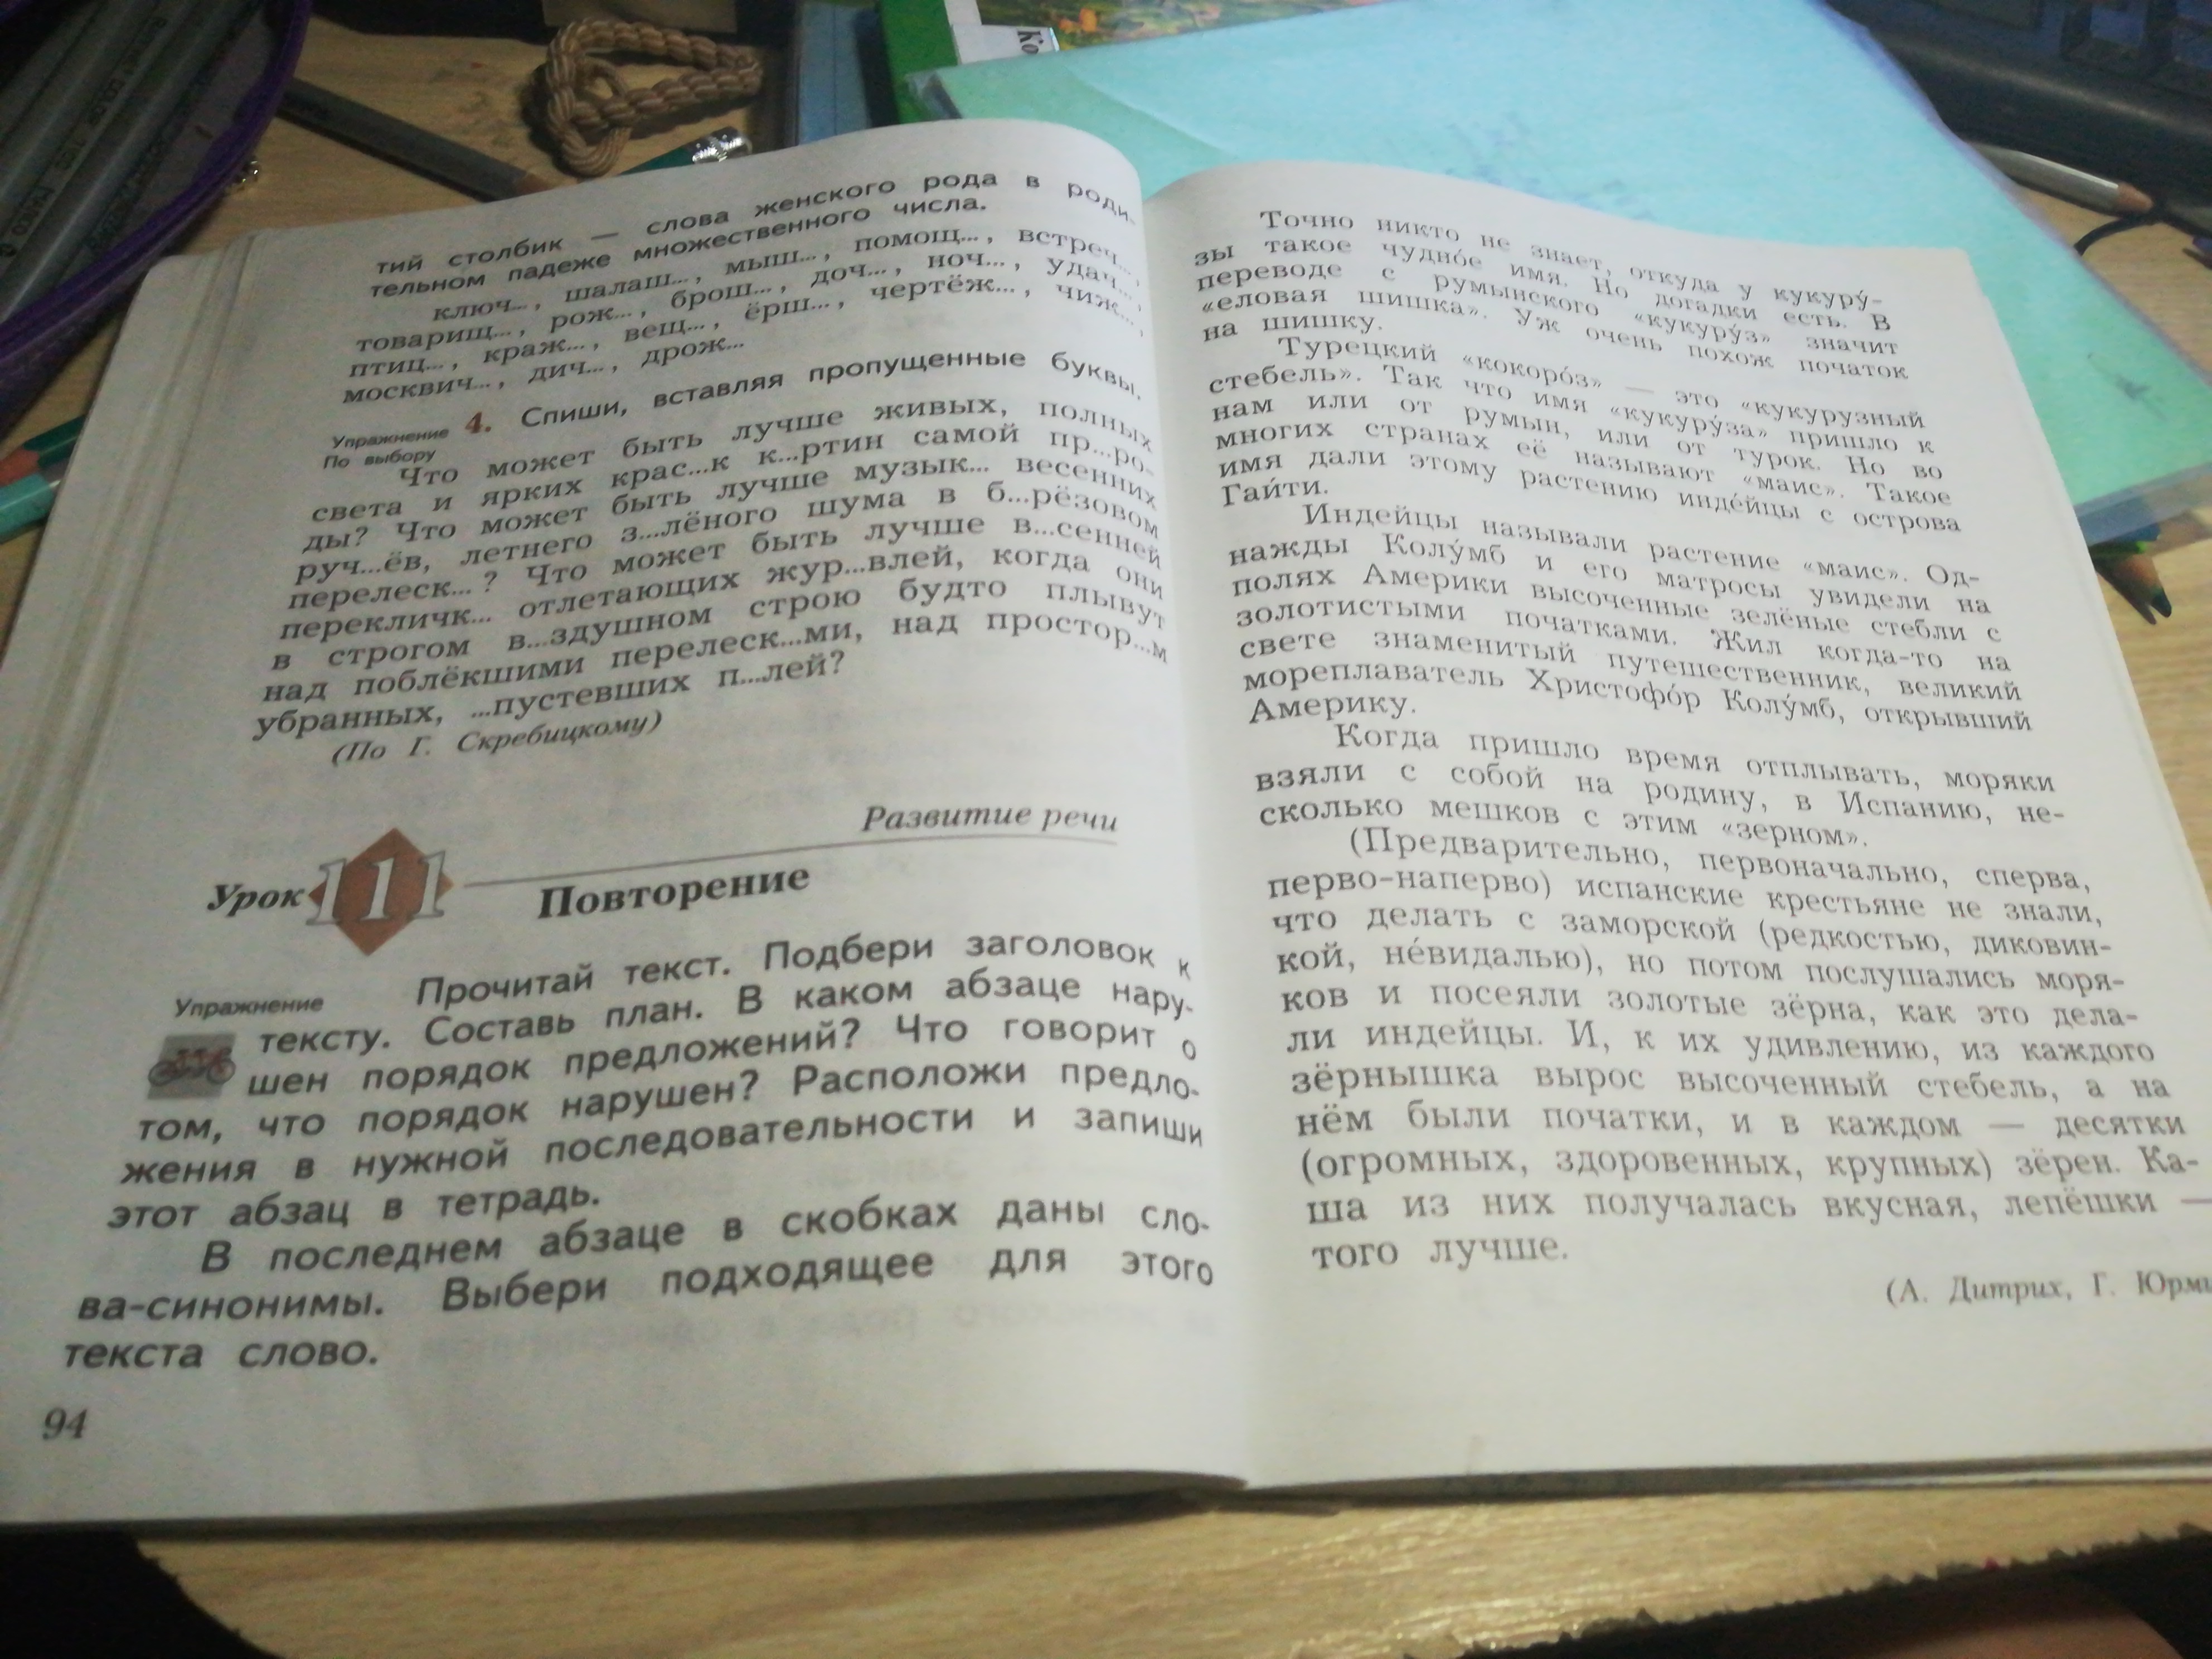 Ко
тий столбик — слова женского рода в роди-
тельном падеже множественного числа.
ключ... , шалаш... , мыш... , помощ... , встреч... ,
товарищ... , рож... , брош... , доч... , ноч... , удач... ,
птиц... , краж... , вещ... , ёрш... , чертёж... , чиж... ,
москвич... , дич... , дрож...
Упражнение 4. Спиши, вставляя пропущенные буквы.
По выбору
Что может быть лучше живых, полных
света и ярких крас...к к...ртин самой пр...ро-
ды? Что может быть лучше музык... весенних
руч...ёв, летнего з...лёного шума в б...рёзовом
перелеск... ? Что может быть лучше в...сенней
перекличк... отлетающих жур...влей, когда они
в строгом в...здушном строю будто плывут
над поблёкшими перелеск...ми, над простор...м
убранных, ...пустевших п...лей?
(По Г. Скребицкому)
Развитие речи
Урок 111 Повторение
Упражнение Прочитай текст. Подбери заголовок к
тексту. Составь план. В каком абзаце нару-
шен порядок предложений? Что говорит о
том, что порядок нарушен? Расположи предло-
жения в нужной последовательности и запиши
этот абзац в тетрадь.
В последнем абзаце в скобках даны сло-
ва-синонимы. Выбери подходящее для этого
текста слово.
94
Точно никто не знает, откуда у кукуру́-
зы такое чудно́е имя. Но догадки есть. В
переводе с румынского «кукуру́з» значит
«еловая шишка». Уж очень похож початок
на шишку.
Турецкий «кокоро́з» — это «кукурузный
стебель». Так что имя «кукуру́за» пришло к
нам или от румын, или от турок. Но во
многих странах её называют «маис». Такое
имя дали этому растению инде́йцы с острова
Гаи́ти.
Индейцы называли растение «маис». Од-
нажды Колу́мб и его матросы увидели на
полях Америки высоченные зелёные стебли с
золотистыми початками. Жил когда-то на
свете знаменитый путешественник, великий
мореплаватель Христофо́р Колу́мб, открывший
Америку.
Когда пришло время отплывать, моряки
взяли с собой на родину, в Испанию, не-
сколько мешков с этим «зерном».
(Предварительно, первоначально, сперва,
перво-наперво) испанские крестьяне не знали,
что делать с заморской (редкостью, диковин-
кой, не́видалью), но потом послушались моря-
ков и посеяли золотые зёрна, как это дела-
ли индейцы. И, к их удивлению, из каждого
зёрнышка вырос высоченный стебель, а на
нём были початки, и в каждом — десятки
(огромных, здоровенных, крупных) зёрен. Ка-
ша из них получалась вкусная, лепёшки —
того лучше.
(А. Дитрих, Г. Юрми